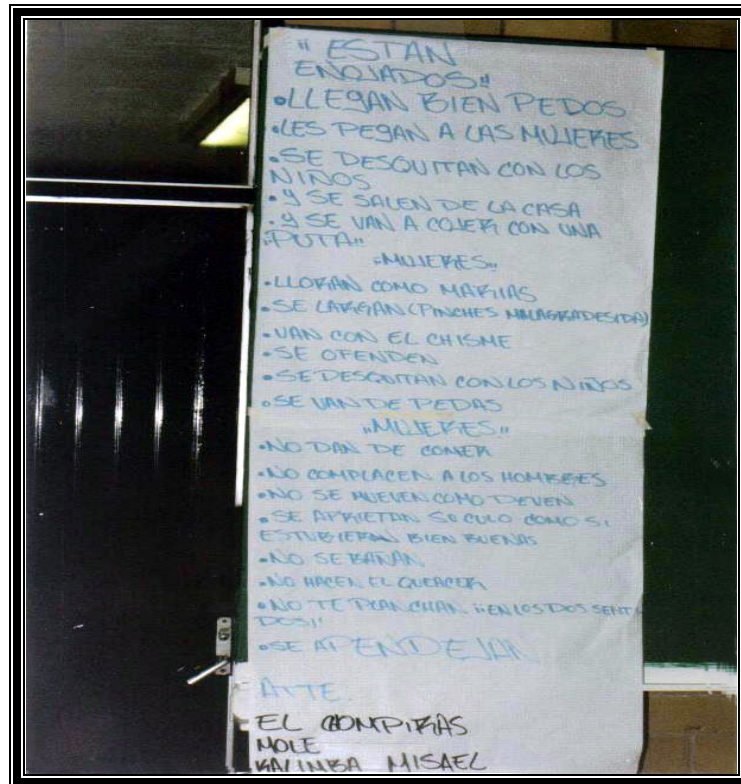 " ESTAN
ENOJADOS"
•LLEGAN BIEN PEDOS
•LES PEGAN A LAS MUJERES
•SE DESQUITAN CON LOS
NIÑOS
•Y SE SALEN DE LA CASA
•Y SE VAN A COJER CON UNA
"PUTA"
"MUJERES"
•LLORAN COMO MARIAS
•SE LARGAN (PINCHES MALAGRADESIDA)
•VAN CON EL CHISME
•SE OFENDEN
•SE DESQUITAN CON LOS NIÑOS
•SE VAN DE PEDAS
"MUJERES"
•NO DAN DE COMER
•NO COMPLACEN A LOS HOMBRES
•NO SE MUEVEN COMO DEVEN
•SE APRIETAN SU CULO COMO SI
ESTUBIERAN BIEN BUENAS
•NO SE BAÑAN
•NO HACEN EL QUEACER
•NO TE PLANCHAN ¡¡EN LOS DOS SENTI
DOS!!
•SE APENDEJAN
ATTE.
EL COMPIRAS
MOLE
KALIMBA MISAEL